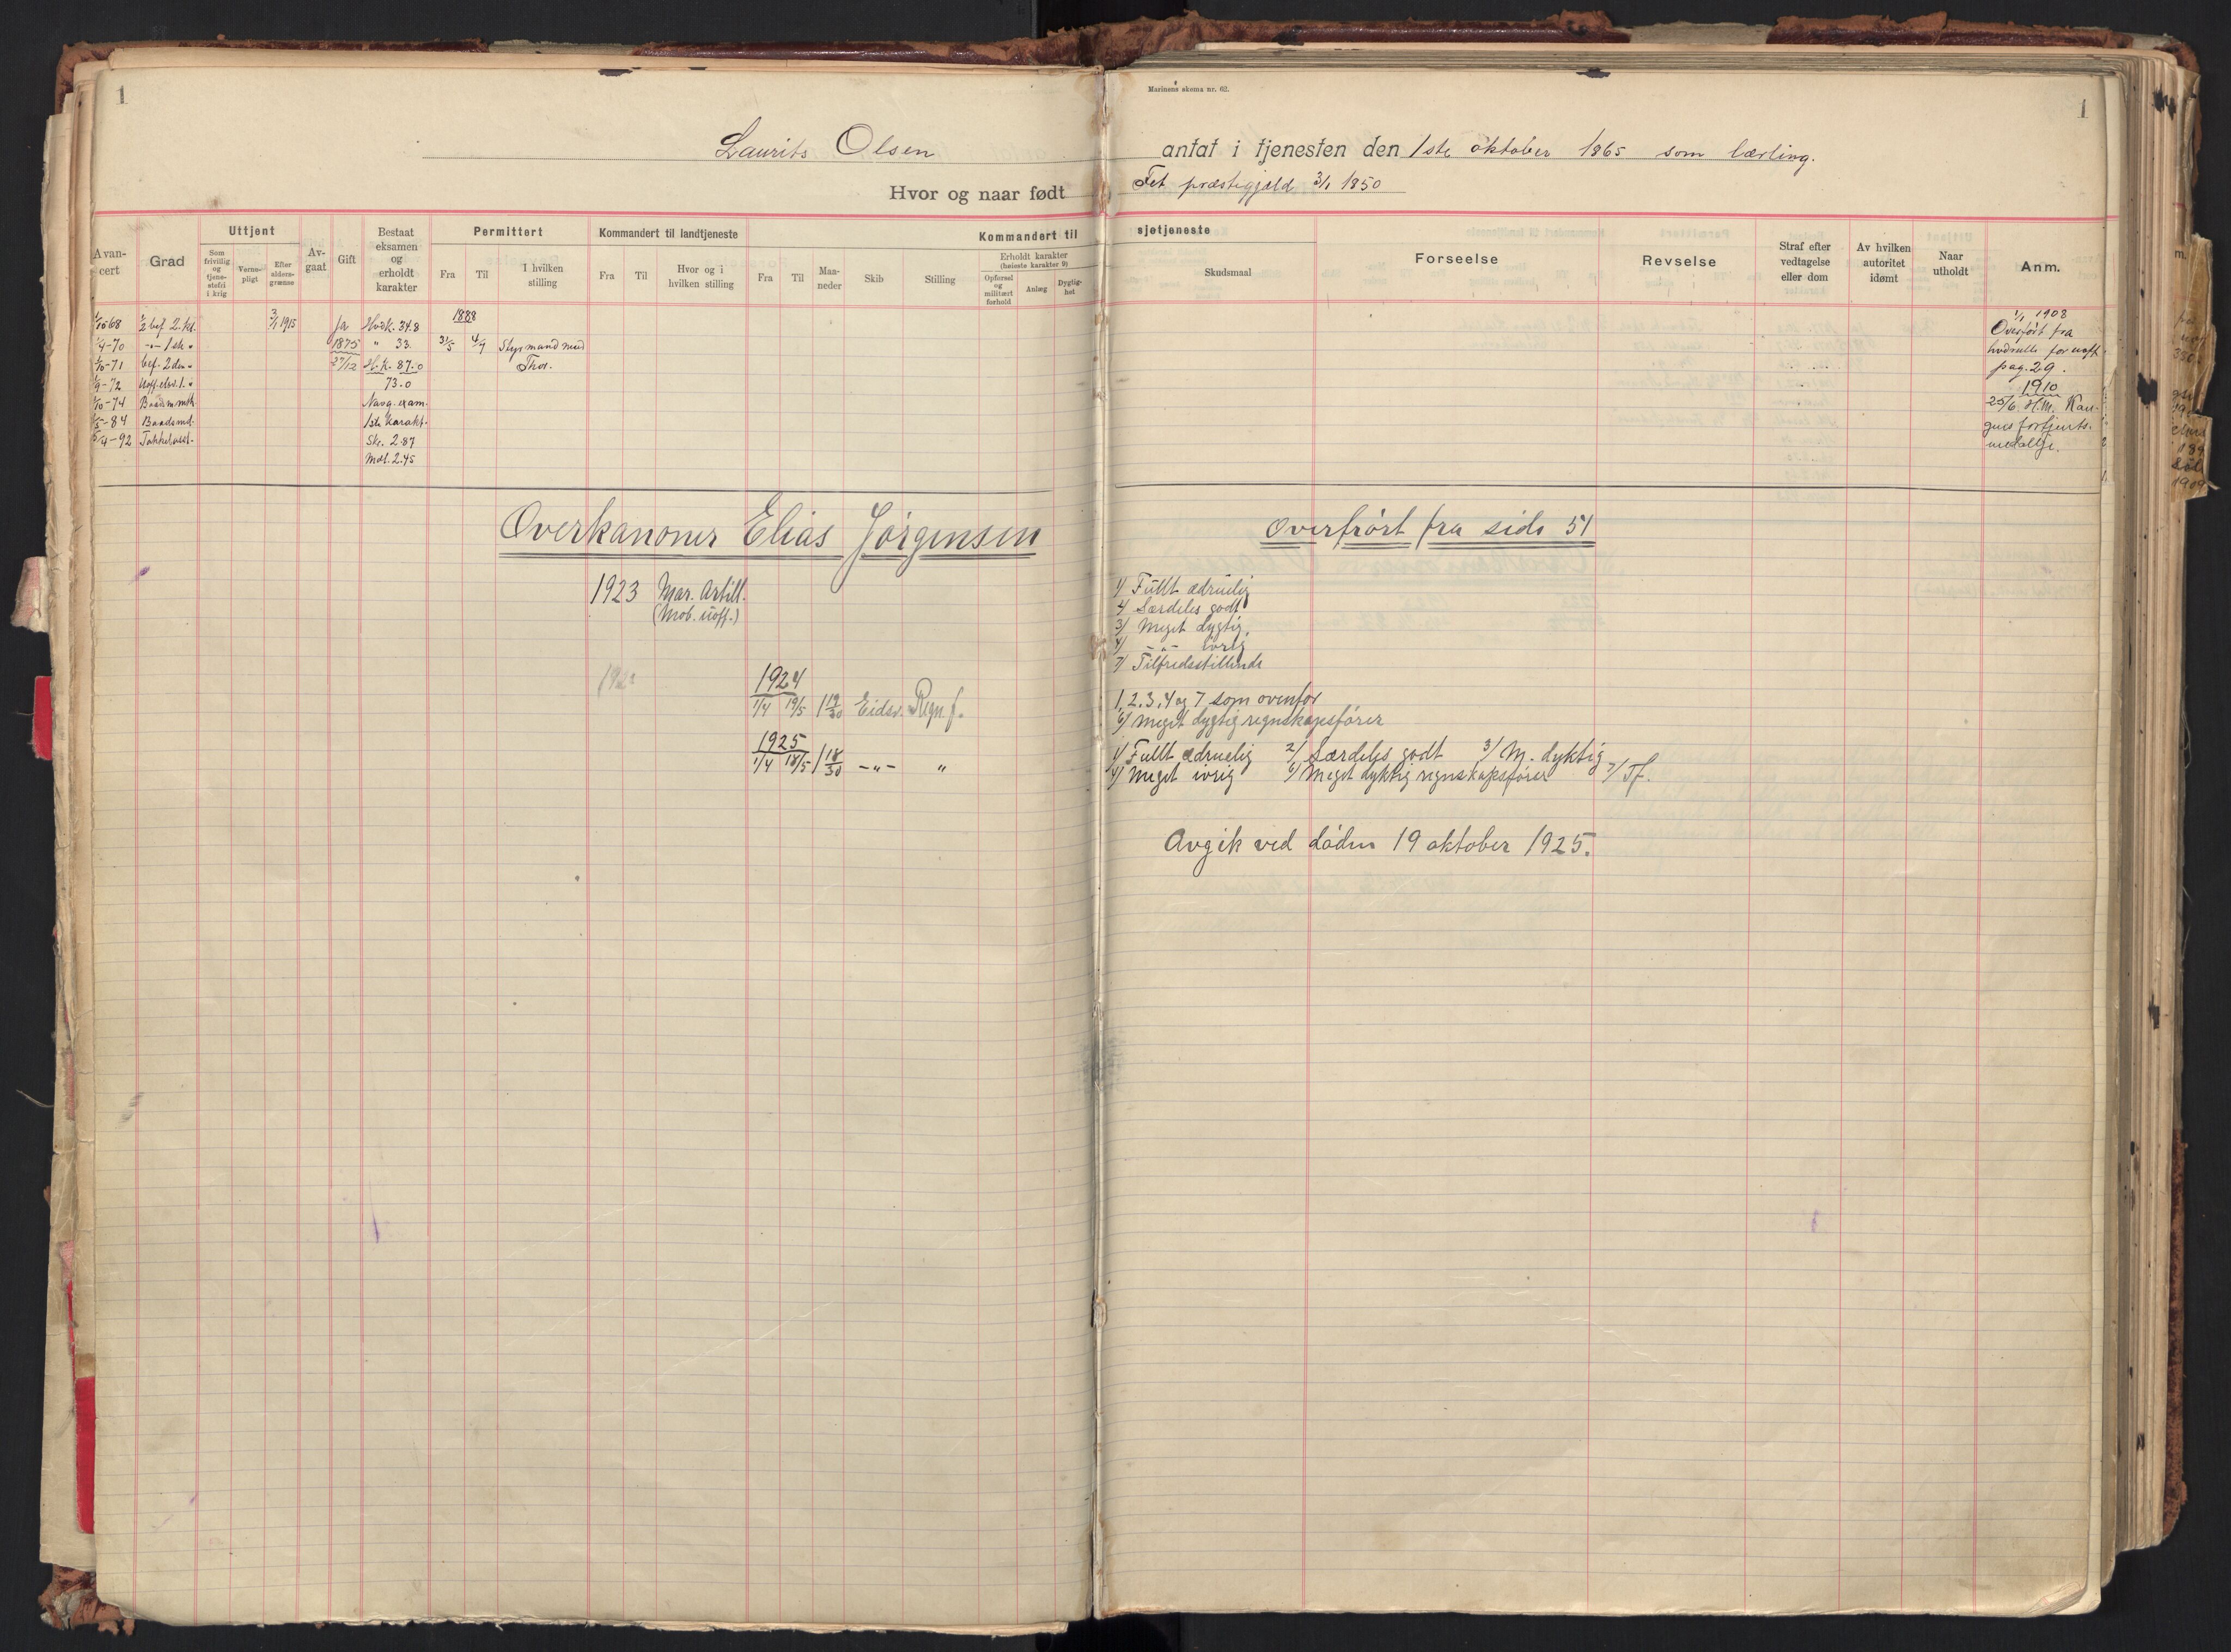 1
Laurits Olsen
Hvor og naar født
Marinens skema nr. 62.
1
antat i tjenesten den 1ste oktober 1865 som lærling.
Fet præstegjæld 3/1 1850
Avancert
Grad
Uttjent
Som frivillig og tjenestefri i krig
Vernepligt
Efter aldersgrænse
Avgaat
Gift
Bestaat eksamen og erholdt karakter
Permittert
Fra
Til
I hvilken stilling
Kommandert til landtjeneste
Fra
Til
Hvor og i hvilken stilling
Kommandert til
Fra
Til
Maaneder
Skib
Stilling
Erholdt karakter
(høieste karakter 9)
Opførsel og militært forhold
Anlæg
Dygtighet
sjøtjeneste
Skudsmaal
Forseelse
Revselse
Straf efter vedtagelse eller dom
Av hvilken autoritet idømt
Naar utholdt
Anm.
1/10-68 1/2 bef. 2. kl. 3/1 1915 Ja 34.8 1888
1/4-70 -"- 1ste " 1875 " 33. 31/5 4/9 Styrmand med
1/10-71 bef. 2den " 27/12 H.k. 87.0 Thor.
1/9-72 Uoff. elev. 1. " 73.0
1/10-74 Baadsm.mth. Navg. exam.
1/5-84 Baadsmd. 1ste Karakt.
5/4-92 Takkelmest. Skr. 2.87
Mdl. 2.45
1/1 1908
Overført fra
hodrulle for uoff.
pag. 29.
1910
25/6. H.M. Kon-
gens fortjenst-
medalje.
Overkanoner Elias Jørgensen
Overført fra side 51
1923 Mar. Artill.
(Mob. uoff.)
1/ Fuldt ædruelig
2/ Særdeles godt
3/ Meget dygtig.
4/ -"- ivrig
7/ Tilfredsstillende
192
1924
1/4 19/5 1 19/30 Eidsv. Regnf.
1, 2. 3. 4 og 7 som ovenfor
6/ Meget dygtig regnskapsfører
1925
1/4 18/5 1 18/30 -"- "
1/ Fullt ædruelig 2/ Særdeles godt 3/ M. dyktig
4/ Meget ivrig 6/ Meget dyktig regnskapsfører 7/ Tf.
Avgik ved døden 19 oktober 1925.